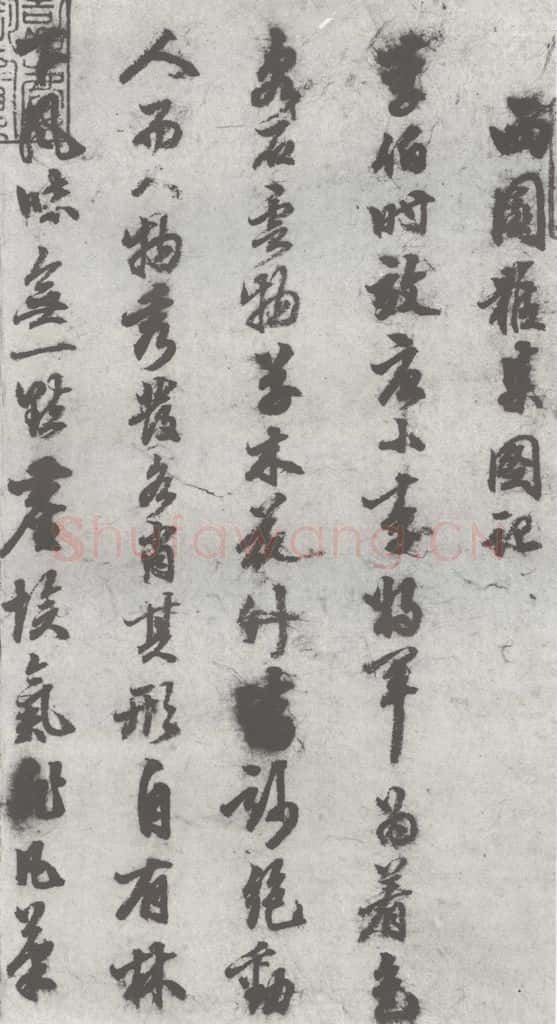 西園雅集圖記
李伯時效唐小李將軍為着色
泉石雲物草木花竹皆妙絕動
人而人物秀發各肖其形自有林
下風味無一點塵埃氣非凡筆
Shufawang.CN